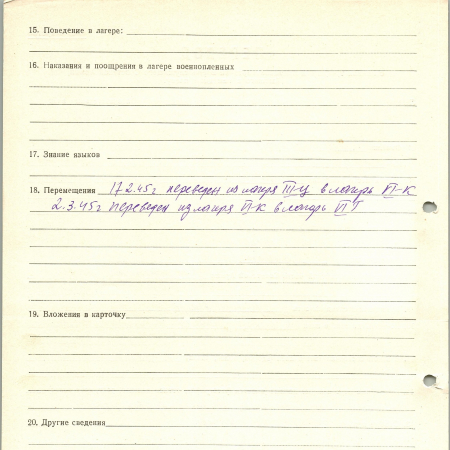 15. Поведение в лагере:
16. Наказания и поощрения в лагере военнопленных
17. Знание языков
18. Перемещения 17.2.45г переведен из лагеря III-Ц в лагерь VI-К
2.3.45г переведен из лагеря VI-К в лагерь VI Г
19. Вложения в карточку
20. Другие сведения